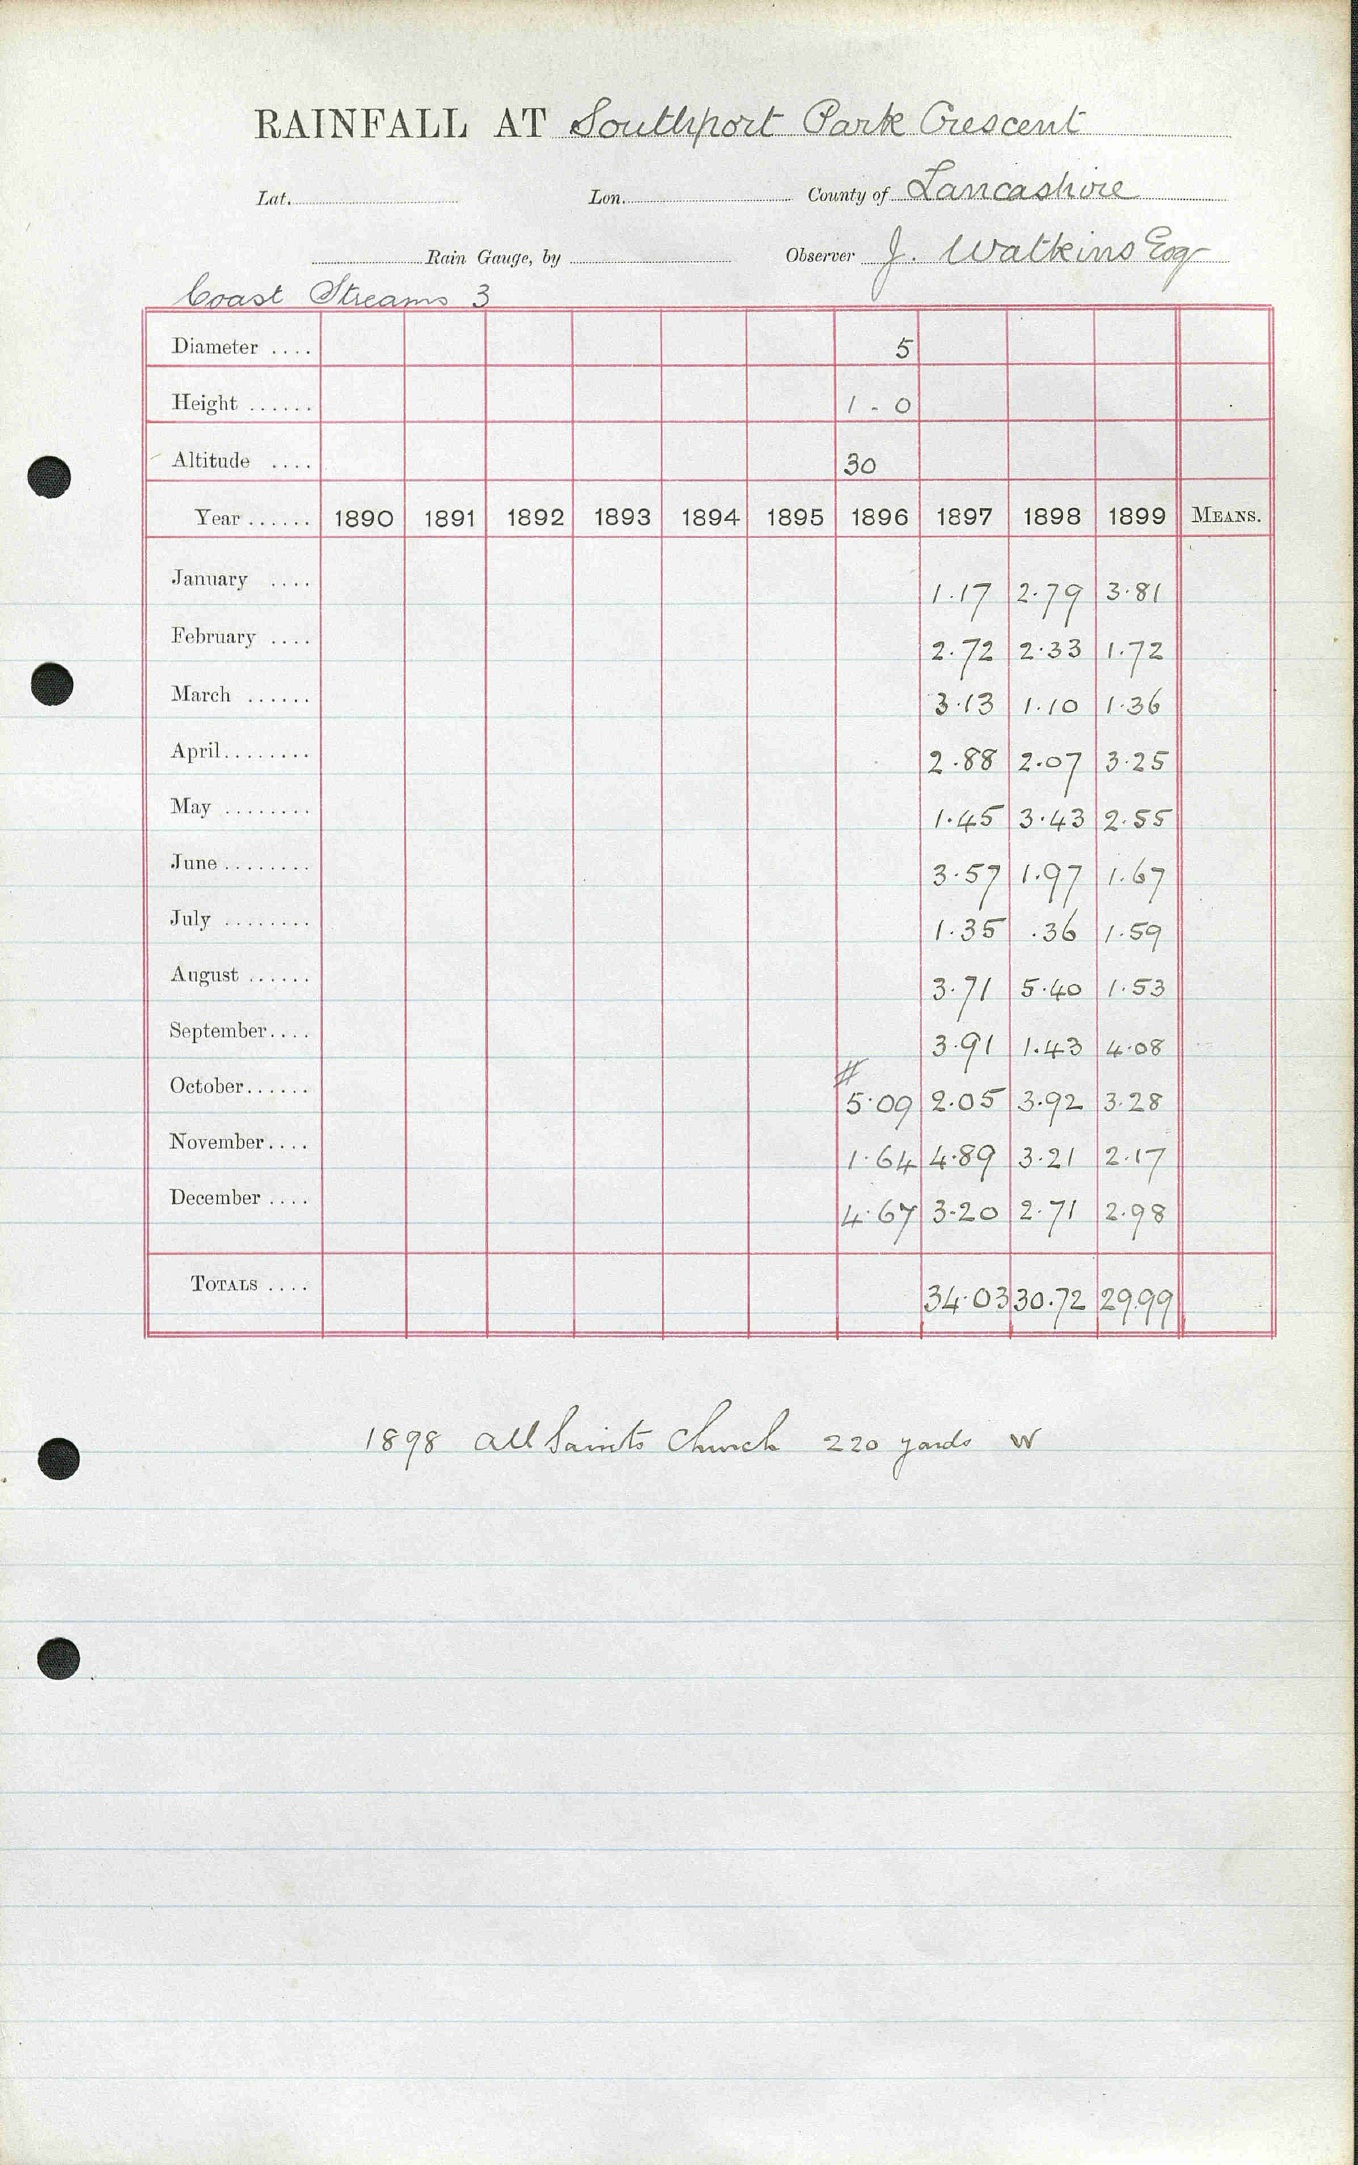 RAINFALL AT Southport Park Crescent
Lat. Lon. County of Lancashire
Rain Gauge, by Observer J. Watkins Esq
Coast Streams 3
Diameter .... 5
Height ...... 1 - 0
Altitude .... 30
Year ...... 1890 1891 1892 1893 1894 1895 1896 1897 1898 1899 MEANS.
January .... 1.17 2.79 3.81
February .... 2.72 2.33 1.72
March ...... 3.13 1.10 1.36
April........ 2.88 2.07 3.25
May ........ 1.45 3.43 2.55
June ........ 3.57 1.97 1.67
July ........ 1.35 .36 1.59
August ...... 3.71 5.40 1.53
September.... 3.91 1.43 4.08
#
October...... 5.09 2.05 3.92 3.28
November.... 1.64 4.89 3.21 2.17
December .... 4.67 3.20 2.71 2.98
TOTALS .... 34.03 30.72 29.99
1898 All Saints Church 220 yards W